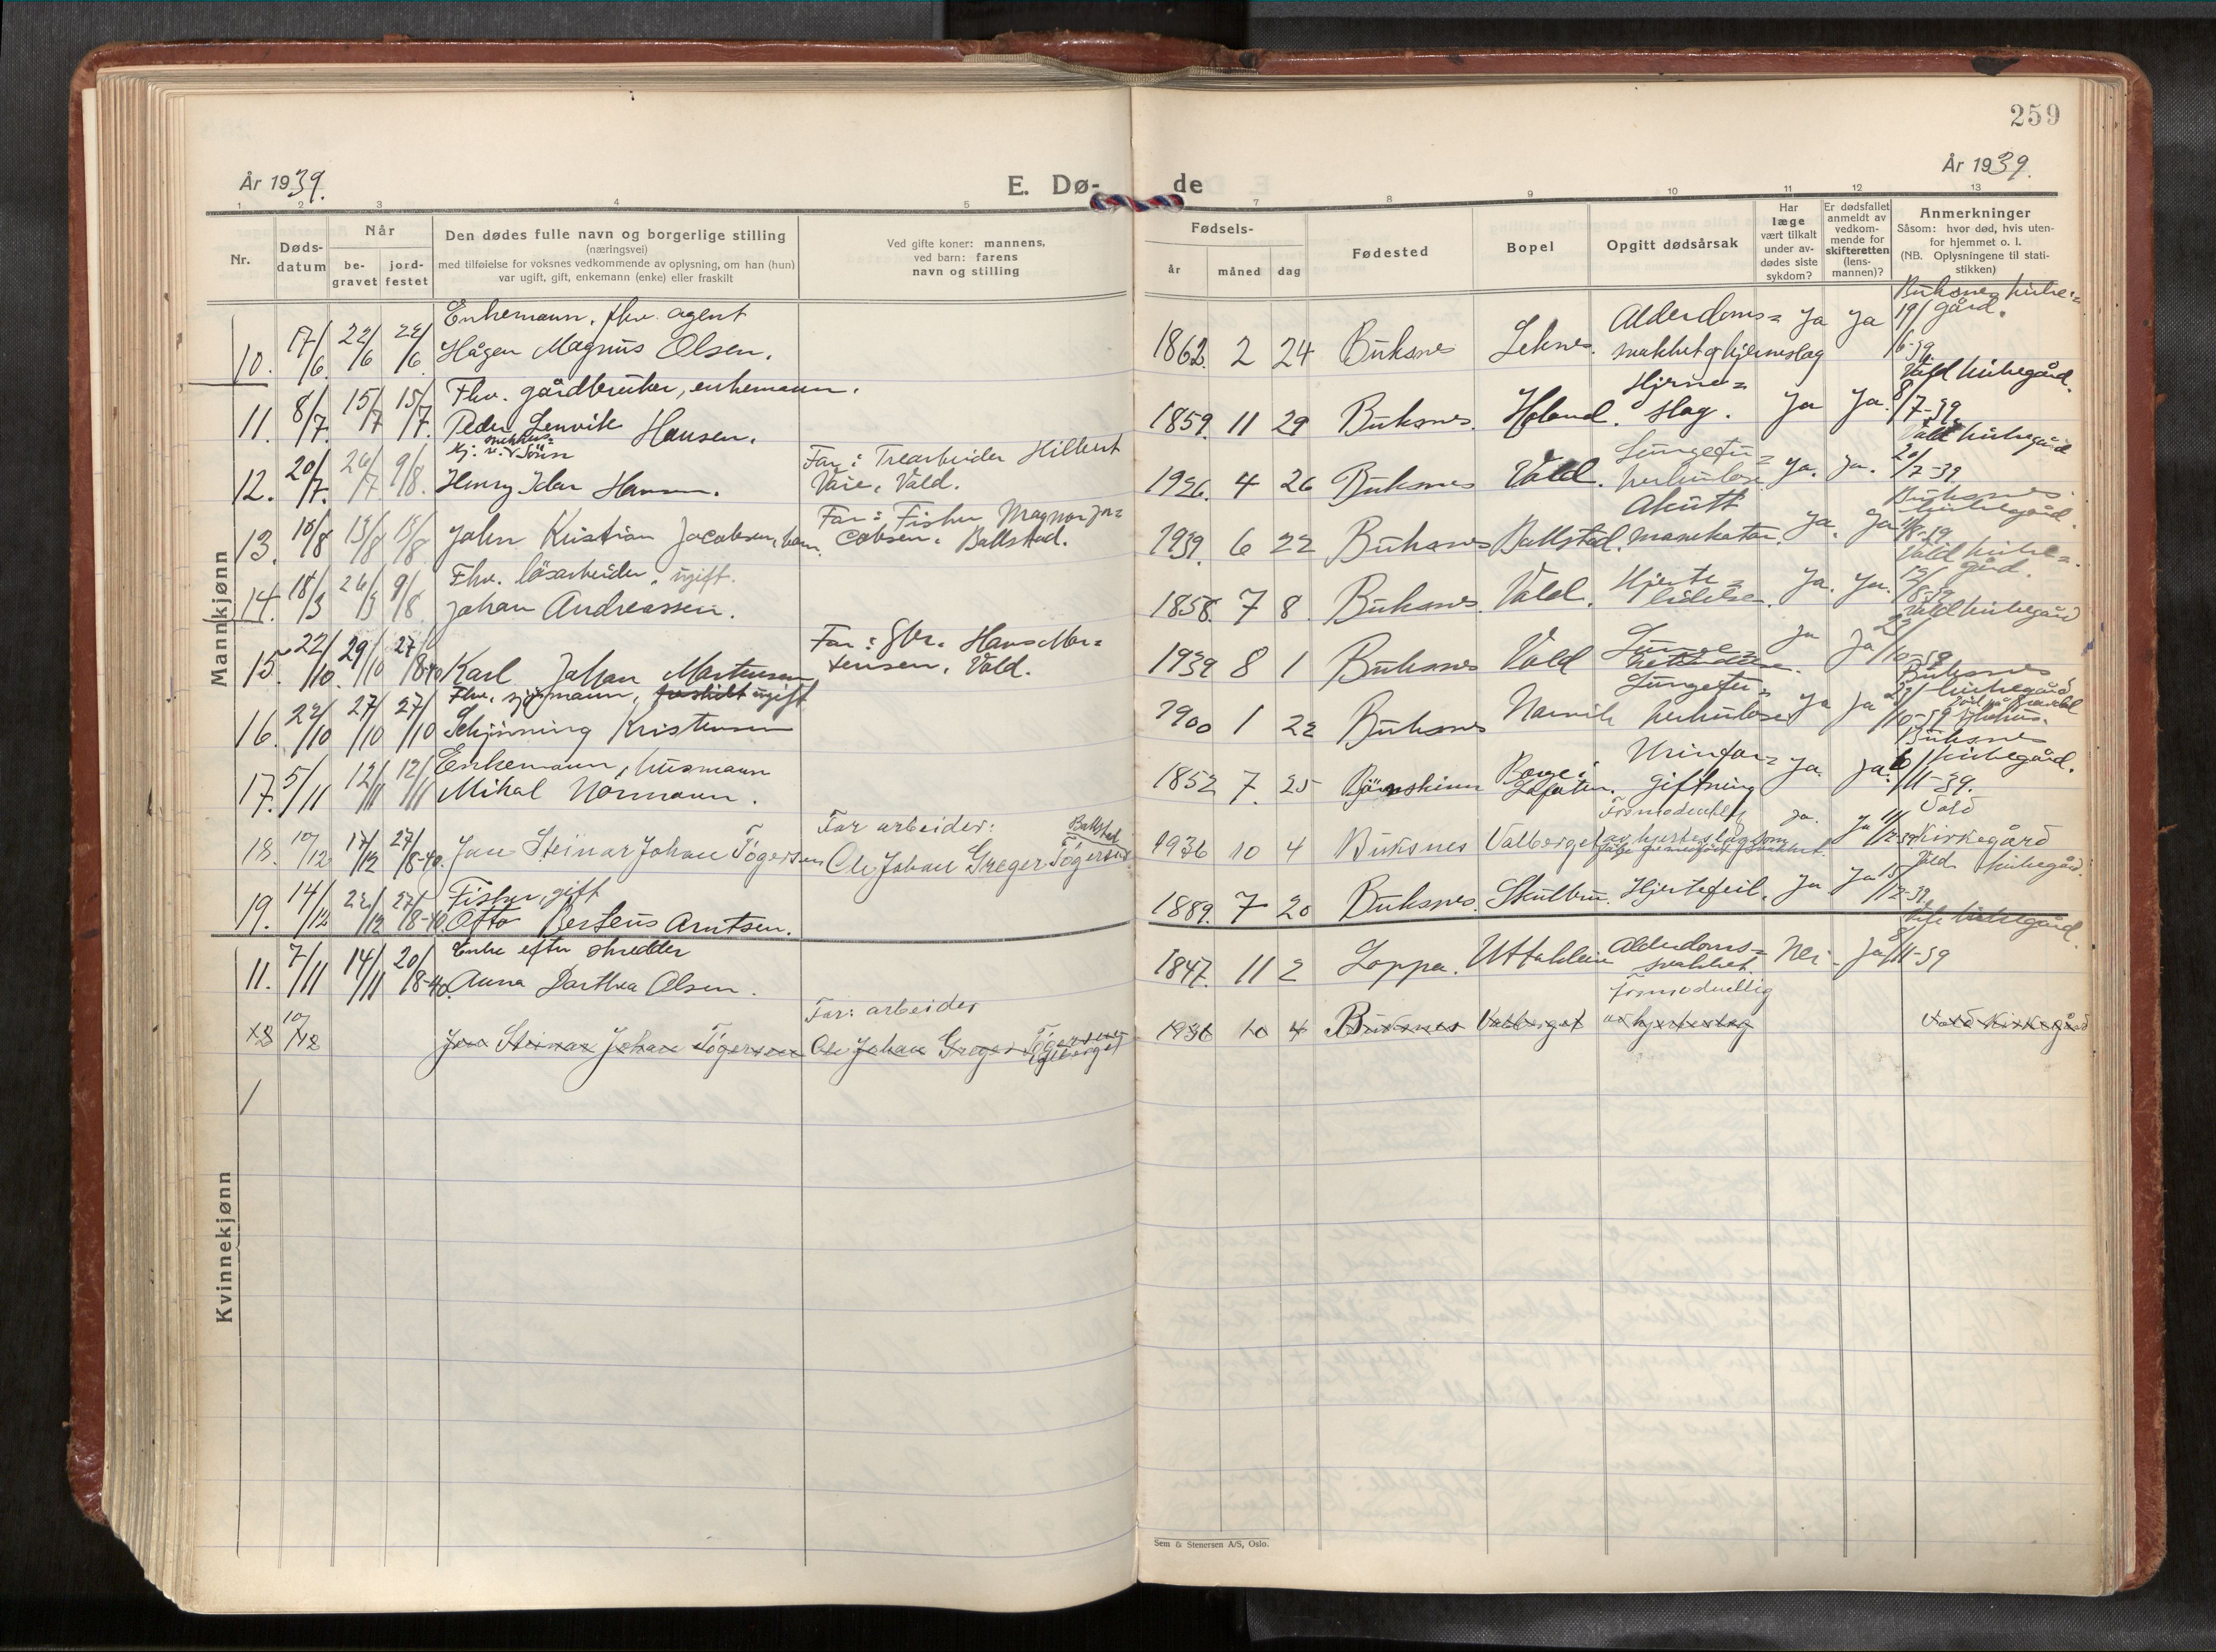 259
År 1939.
E. Dø-
de
År 1939.
1 2 3 4 5 7 8 9 10 11 12 13
Nr.
Døds-
datum
Når
be-
gravet
jord-
festet
Den dødes fulle navn og borgerlige stilling
(næringsvei)
med tilføielse for voksnes vedkommende av oplysning, om han (hun)
var ugift, gift, enkemann (enke) eller fraskilt
Ved gifte koner: mannens,
ved barn: farens
navn og stilling
Fødsels-
år måned dag
Fødested
Bopel
Opgitt dødsårsak
Har
læge
vært tilkalt
under av-
dødes siste
sykdom?
Er dødsfallet
anmeldt av
vedkom-
mende for
skifteretten
(lens-
mannen)?
Anmerkninger
Såsom: hvor død, hvis uten-
for hjemmet o. l.
(NB. Oplysningene til stati-
stikken)
Mannkjønn
Enkemann, fhv. agent
10. 17/6 22/6 22/6 Hågen Magnus Olsen. 1862 2 24 Buksnes Leknes. Alderdoms=
svakhet og hjerneslag Ja Ja Buksnes kirke=
gård. 19/6-39.
Fhv. gårdbruker, enkemann.
11. 8/7. 15/7 15/7. Peder Lenvik Hansen. 1859. 11 29 Buksnes. Holand. Hjerne=
slag. Ja Ja. Vold kirkegård.
8/7-39.
12. 20/7. 26/7 9/8. Henry Idar Hansen. Far: Trearbeider Hilbert
Våre, Vold. 1926. 4 26 Buksnes Vold. Lungetu=
berkulose Ja. Ja. Vold kirkegård
20/7-39
13. 10/8 13/8 13/8 John Kristian Jacobsen, barn. Far: Fisker Magnor Ja=
cobsen, Ballstad. 1939. 6 22 Buksnes Ballstad. Akutt
mavekatar. Ja. Ja Buksnes
kirkegård.
Fhv. løsarbeider, ugift.
14. 18/3 26/3 9/8. Johan Andreassen. 1858. 7 8 Buksnes. Vold. Hjerte=
lidelse. Ja. Ja. Vold kirke=
gård.
15. 22/10. 29/10 27/8-40 Karl Johan Mortensen Far: gbr. Hans Mor=
tensen, Vold. 1939 8 1 Buksnes Vold Lunge=
betendelse. Ja Ja Vold kirkegård
Fhv. sjømann, fraskilt ugift
16. 22/10 27/10 27/10 Schjinning Kristensen 1900 1 22 Buksnes Narvik Lungetu=
berkulose Ja Ja Buksnes
kirkegård
Enkemann, husmann
17. 5/11 12/11 12/11 Mikal Normann. 1852 7. 25 Bjørnskinn Borge i
Lofoten. Urinfor=
giftning Ja. Ja. Buksnes
kirkegård.
6/11-39.
18. 10/12 17/12 27/8-40. Jan Steinar Johan Tøgersen Far arbeider: Ballstad
Ole Johan Greger Tøgersen 1936 10 4 Buksnes Valberget Formodentlig
av hjerteslag som Ja. Ja Vold
Kirkegård
19. 14/12 22/12 27/8-40 Fisker, gift
Otto Berteus Arntsen. 1889. 7 20 Buksnes. Skulbru. Hjertefeil. Ja Ja Vold kirkegård.
15/12-39.
Kvinnekjønn
11. 7/11 14/11 20/8-40. Enke efter skredder
Anna Dorthea Olsen. 1847. 11 2 Loppa. Uttakleiv Alderdoms=
svakhet. Nei. Ja kirkegård.
8/11-39
12 10/12 Jan Steinar Johan Tøgersen Far: arbeider
Ole Johan Greger Tøgersen
Valberget 1936 10 4 Buksnes Valberget Formodentlig
av hjerteslag Vold Kirkegård
Sem & Stenersen A/S, Oslo.